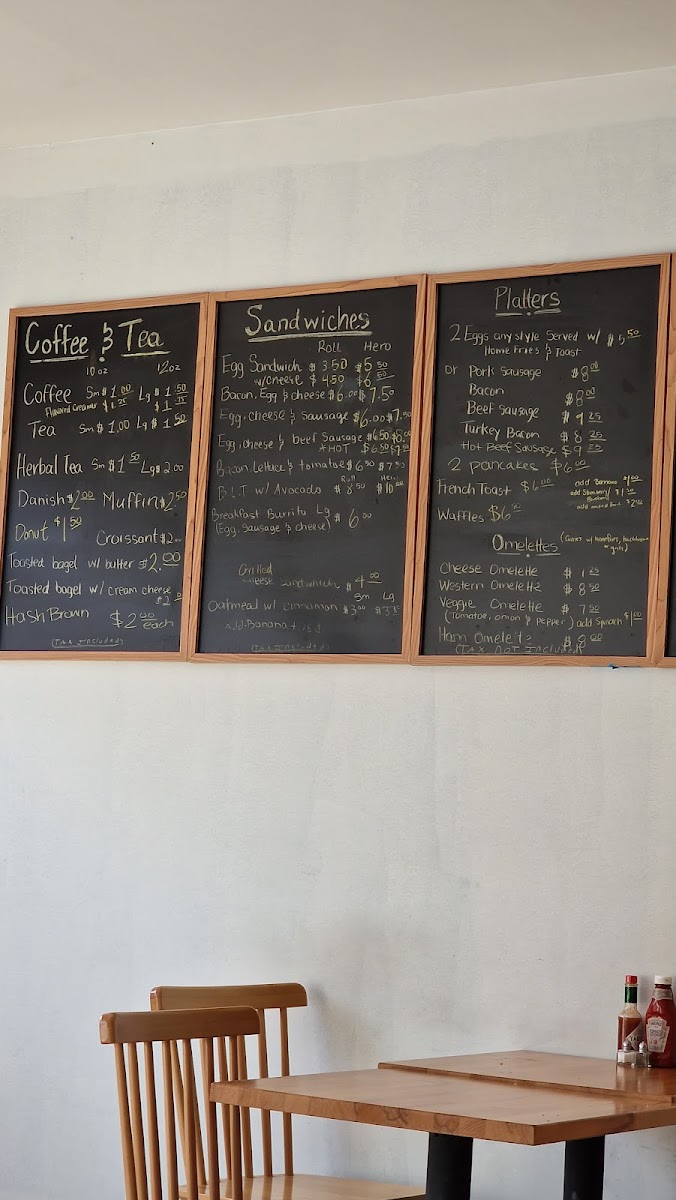 Coffee & Tea
10 oz 12 oz
Coffee Sm $1.00 Lg $1.50
Flavored Creamer $1.25 $1.75
Tea Sm $1.00 Lg $1.50
Herbal Tea Sm $1.50 Lg $2.00
Danish $2.00 Muffin $2.50
Donut $1.50
Croissant $2.00
Toasted bagel w/ butter $2.00
Toasted bagel w/ cream cheese
Hash Brown $2.00 each
(TAX INCLUDED)
Sandwiches
Roll Hero
Egg Sandwich $3.50 $5.50
w/cheese $4.50 $6.50
Bacon, Egg & cheese $6.00 $7.50
Egg, cheese & Sausage $6.00 $7.50
Egg, cheese & beef Sausage $6.50 $8.00
*HOT $6.50
Bacon, Lettuce & tomatoes $6.50 $7.50
Roll Hero
B.L.T w/ Avocado $8.50 $10.00
Breakfast Burrito Lg $6.00
(Egg, Sausage & cheese)
Grilled
cheese sandwhich $4.00
Sm Lg
Oatmeal w/ cinnamon $3.00
Add Banana +
(TAX Included)
Platters
2 Eggs any style Served w/ $5.50
Home Fries & Toast
or Pork Sausage $8.00
Bacon $8.00
Beef Sausage $9.25
Turkey Bacon $8.25
Hot Beef Sausage $9.25
2 pancakes $6.00
French Toast $6.00 add Banana $1.00
add Strawberry/ $1.50
Waffles $6
Omelettes
Cheese Omelette
Western Omelette $8.50
Veggie Omelette $7.50
(Tomatoe, onion & pepper) add Spinach $1.00
Ham Omelette $8.00
(TAX NOT INCLUDED)